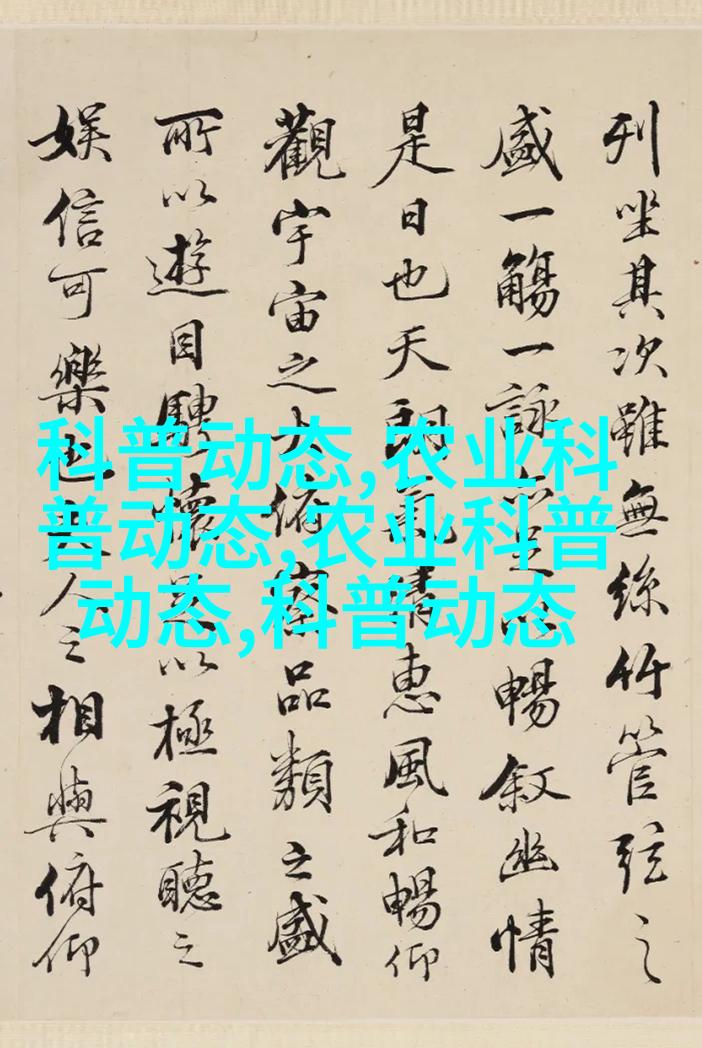 列坐其次雖無絲竹管弦之
盛一觴一詠亦足以暢叙幽情
是日也天朗氣清惠風和暢仰
觀宇宙之大俯察品類之盛
所以遊目騁懷足以極視聽之
娱信可樂也夫人之相與俯仰
科普动态,农业科
普动态,农业科普
动态,科普动态